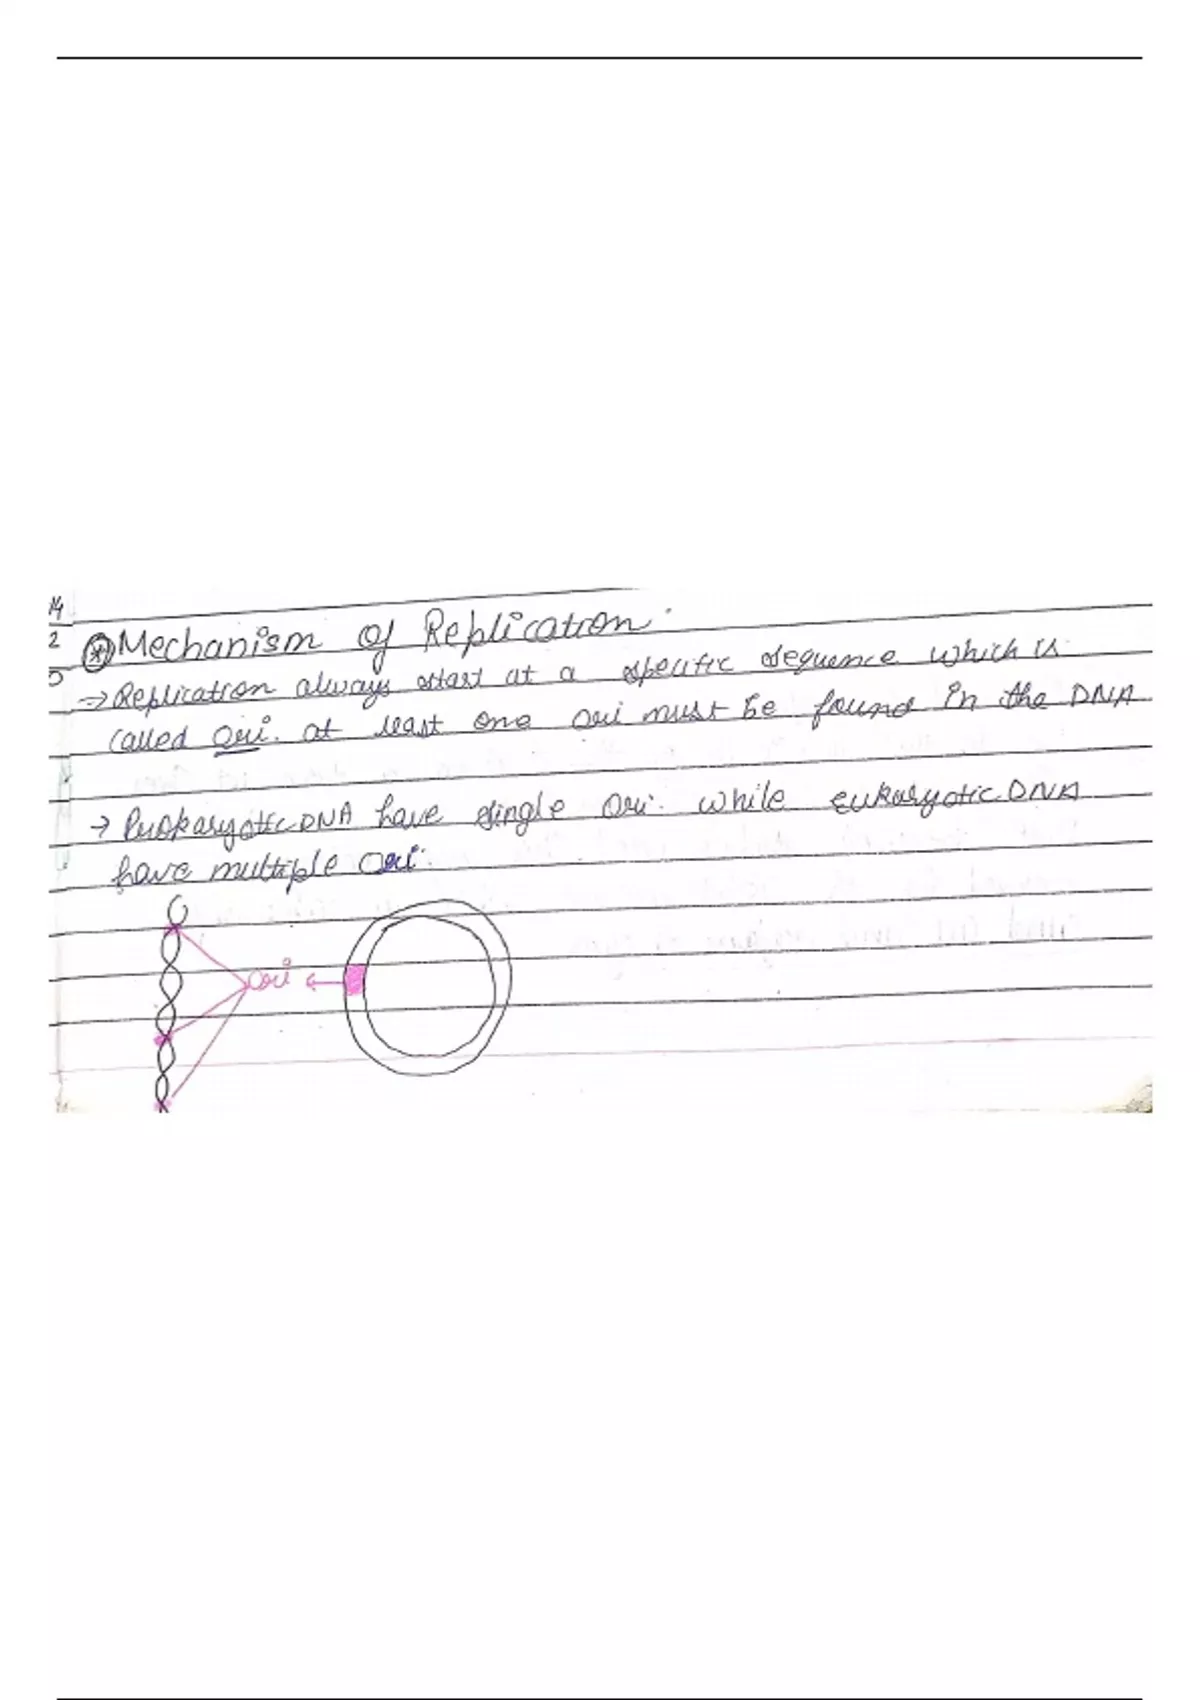 14
2 * Mechanism of Replication.
→ Replication always start at a specific sequence which is
called ori. at least one ori must be found in the DNA
→ Prokaryotic DNA have single ori. while eukaryotic DNA
have multiple ori.
ori